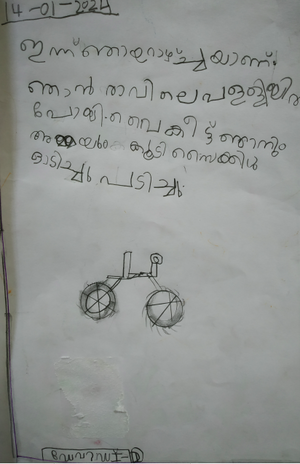 14-01-2024
ഇന്ന് ഞായറാഴ്ച്ചയാണ്.
ഞാൻ രാവിലെ പള്ളിയിൽ
പോയി. വൈകീട്ട് ഞാനും
അമ്മയും കൂടി സൈക്കിൾ
ഓടിച്ചു പടിച്ചു.